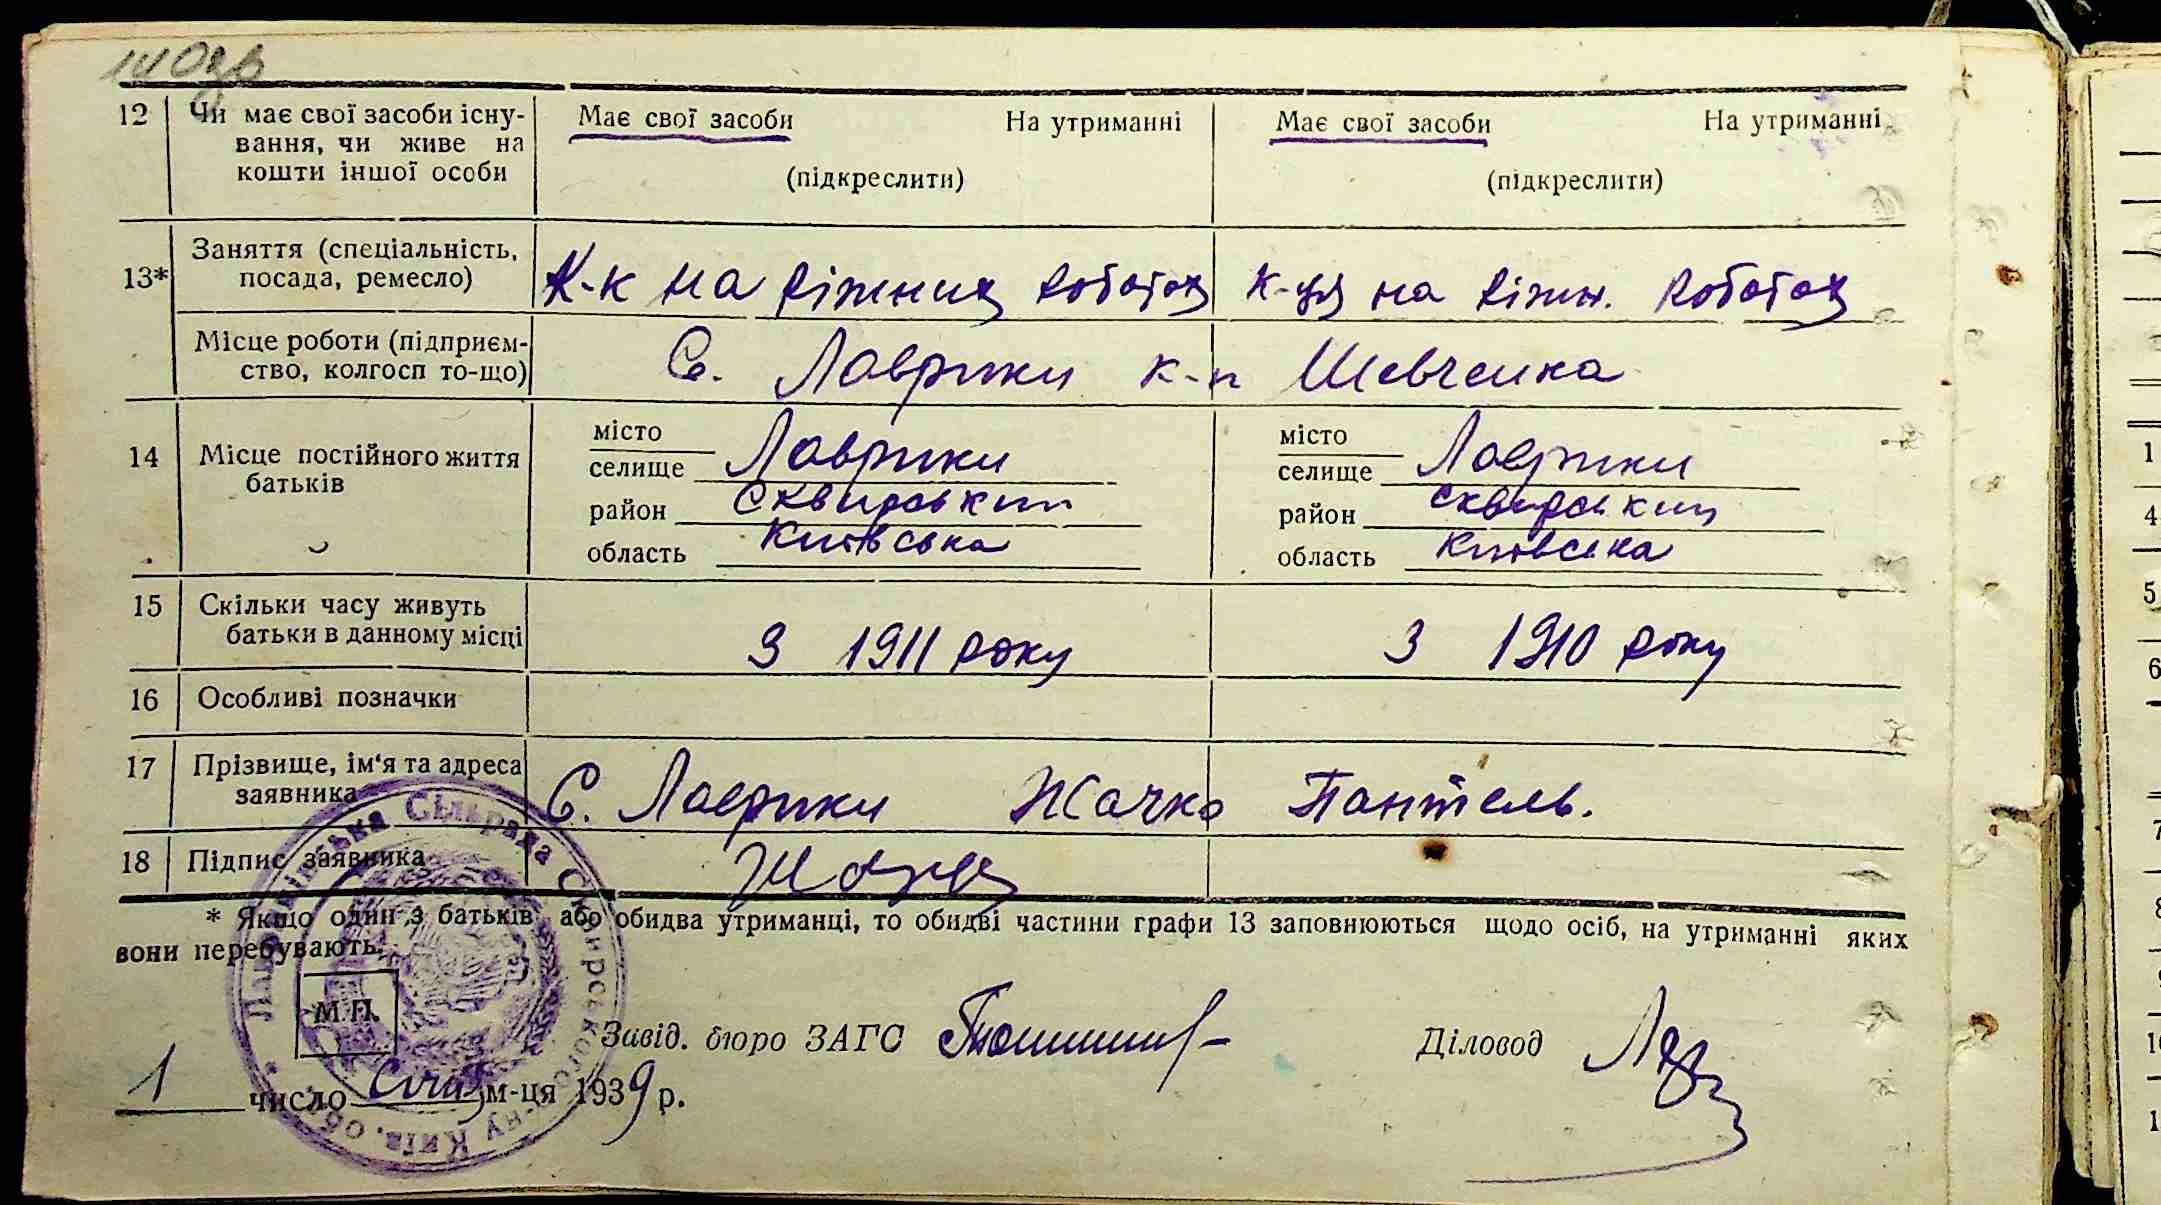 14 Одв
12 Чи має свої засоби існу- Має свої засоби На утриманні Має свої засоби На утриманні
вання, чи живе на
кошти іншої особи (підкреслити) (підкреслити)
13* Заняття (спеціальність,
посада, ремесло) К-к на ріжних роботах К-ця на ріжн. роботах
Місце роботи (підприєм-
ство, колгосп то-що) С. Лаврики к-п Шевченка
14 Місце постійного життя
батьків
місто місто
селище Лаврики селище Лаврики
район Сквирський район Сквирський
область Київська область Київська
15 Скільки часу живуть
батьки в данному місці З 1911 року З 1910 року
16 Особливі позначки
17 Прізвище, ім'я та адреса
заявника С. Лаврики Жачко Пантель.
18 Підпис заявника
* Якщо один з батьків або обидва утриманці, то обидві частини графи 13 заповнюються щодо осіб, на утриманні яких
вони перебувають.
М.П.
Завід. бюро ЗАГС Діловод
1 число Січня м-ця 1939 р.
Сільрада Сквирського р-ну Київ. обл.